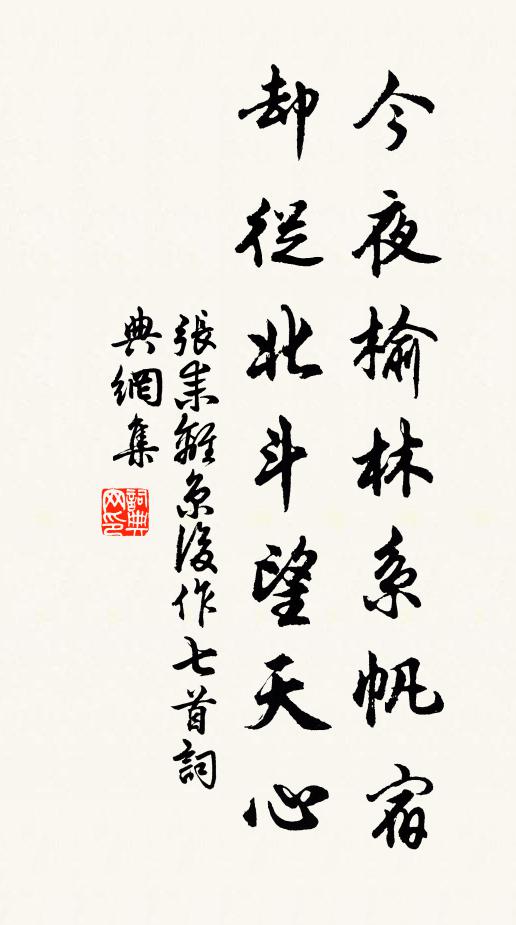 今夜榆林系帆宿
却從北斗望天心
張耒離京後作七首詞
典網集
詞典
网印